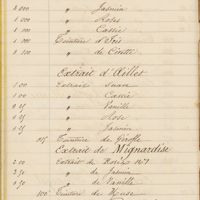 8 000 " Jasmin
1 000 " Roses
1 000 " Cassie
1 000 Teinture d'Iris
0 200 " de Civette
Extrait d'Œillet
1 00 Extrait Suave
1 00 " Cassie
0 25 " Vanille
0 25 " Rose
0 25 " Jasmin
Teinture de Girofle
Extrait de Mignardise
2 00 Extrait de Roses No 1
2 50 " de Jasmin
2 50 " de Vanille
100 Teinture de Musc